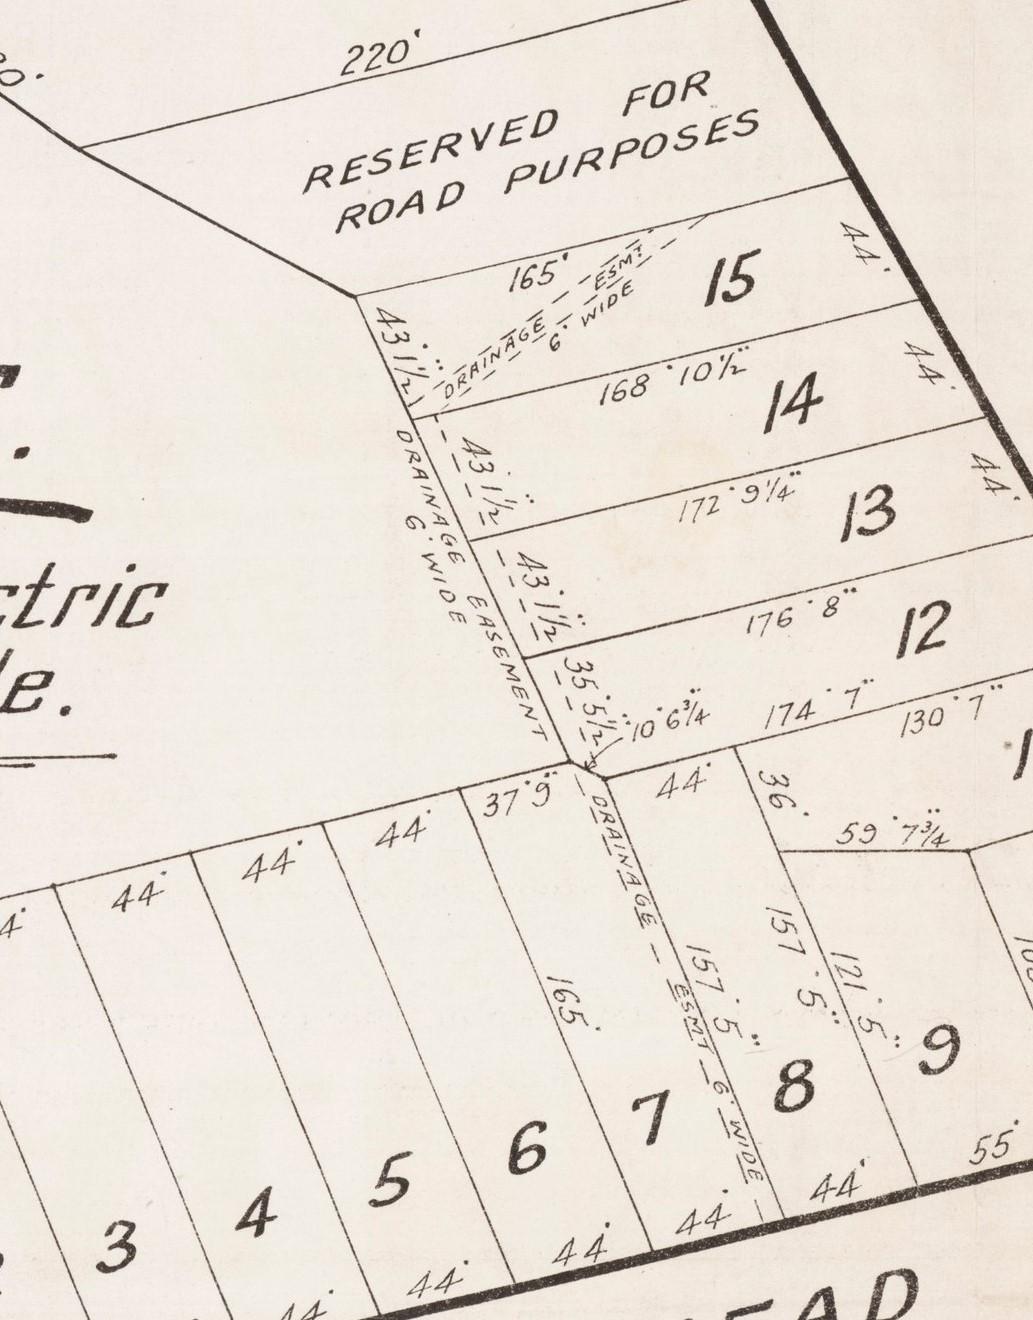 220'
RESERVED FOR
ROAD PURPOSES
165'
DRAINAGE ESMT
6' WIDE
15
44'
43' 1½"
168' 10½"
14
44'
DRAINAGE EASEMENT
6' WIDE
43' 1½"
172' 9¼"
13
44'
43' 1½"
176' 8"
12
35' 5½"
10' 6¾"
174' 7"
130' 7"
37' 9"
44'
36'
59' 7¾"
44'
44'
44'
DRAINAGE - ESMT - 6' WIDE
165'
157' 5"
157' 5"
121' 5"
3
4
5
6
7
8
9
44'
44'
44'
44'
44'
55'